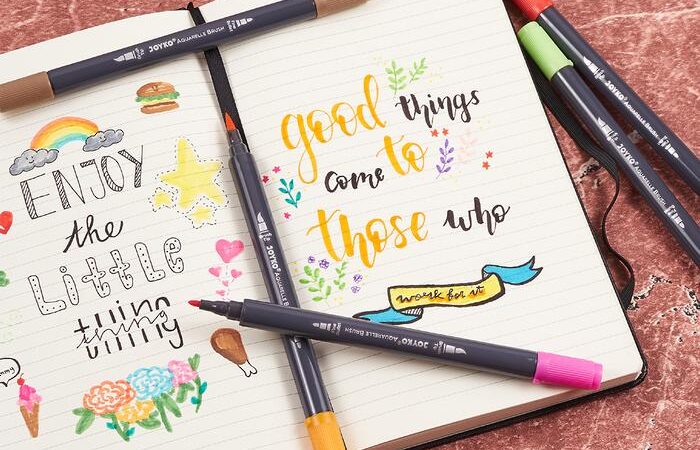 JOYKO® AQUARELLE BRUSH
ENJOY
the
Little
thing
good things
come to
those who
work for it
JOYKO® AQUARELLE BRUSH
JOYKO® AQUARELLE BRUSH
JOYKO® AQUARELLE BRUSH
JOYKO® AQUARELLE BRUSH